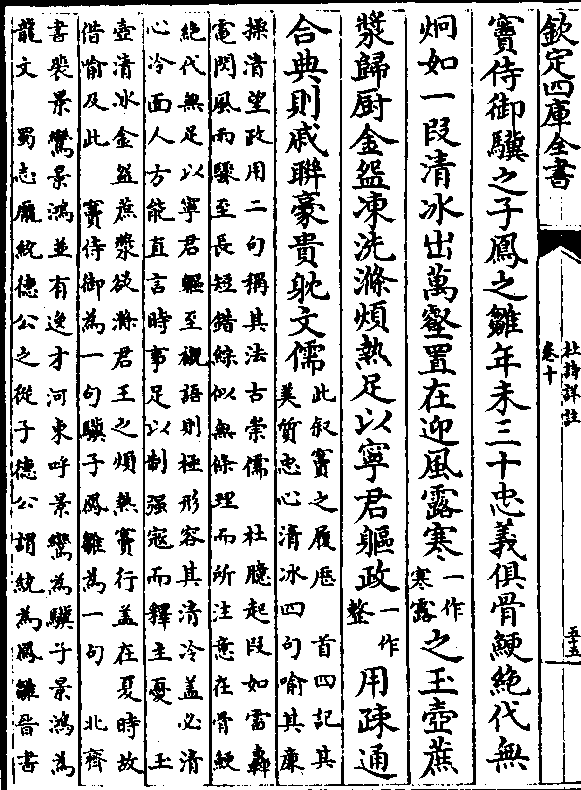 欽定四庫全書
杜詩詳註
卷十
竇侍御驥之子鳳之雛年未三十忠義俱骨鯁絶代無
炯如一段清冰出萬壑置在迎風露寒一作寒露之玉壺蔗
漿歸厨金盌凍洗滌煩熱足以寧君軀政一作整用疎通
合典則戚聯豪貴躭文儒此叙竇之履歴 首四記其
美質忠心清冰四句喻其廉
操清望政用二句稱其法古崇儒 杜臆起段如雷轟
電閃風雨驟至長短錯綜似無條理而所注意在骨鯁
絶代無足以寧君軀至襯語則極形容其清冷盖必清
心冷面人方能直言時事足以制强寇而釋主憂 玉
壺清冰金盌蔗漿欲滌君王之煩熱竇行盖在夏時故
借喻及此 竇侍御為一句驥子鳳雛為一句 北齊
書裴景鸞景鴻並有逸才河東呼景鸞為驥子景鴻為
龍文 蜀志龎統德公之從子德公謂統為鳳雛晉書